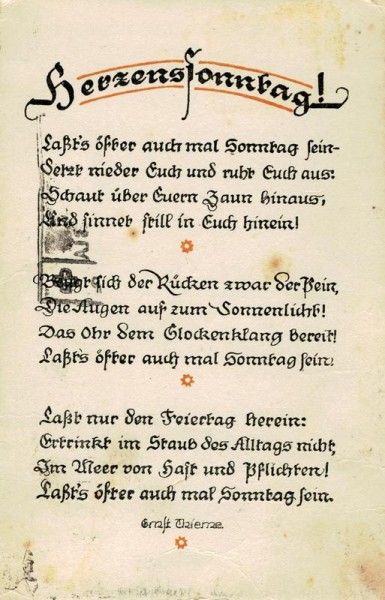 Herzenssonntag!
Laßt's öfter auch mal Sonntag sein-
Setzt nieder Euch und ruht Euch aus:
Schaut über Euern Zaun hinaus,
Und sinnet still in Euch hinein!
Beugt sich der Rücken zwar der Pein,
Die Augen auf zum Sonnenlicht!
Das Ohr dem Glockenklang bereit!
Laßt's öfter auch mal Sonntag sein!
Laßt nur den Feiertag herein:
Ertrinkt im Staub des Alltags nicht,
Im Meer von Hast und Pflichten!
Laßt's öfter auch mal Sonntag sein.
Ernst Thieme